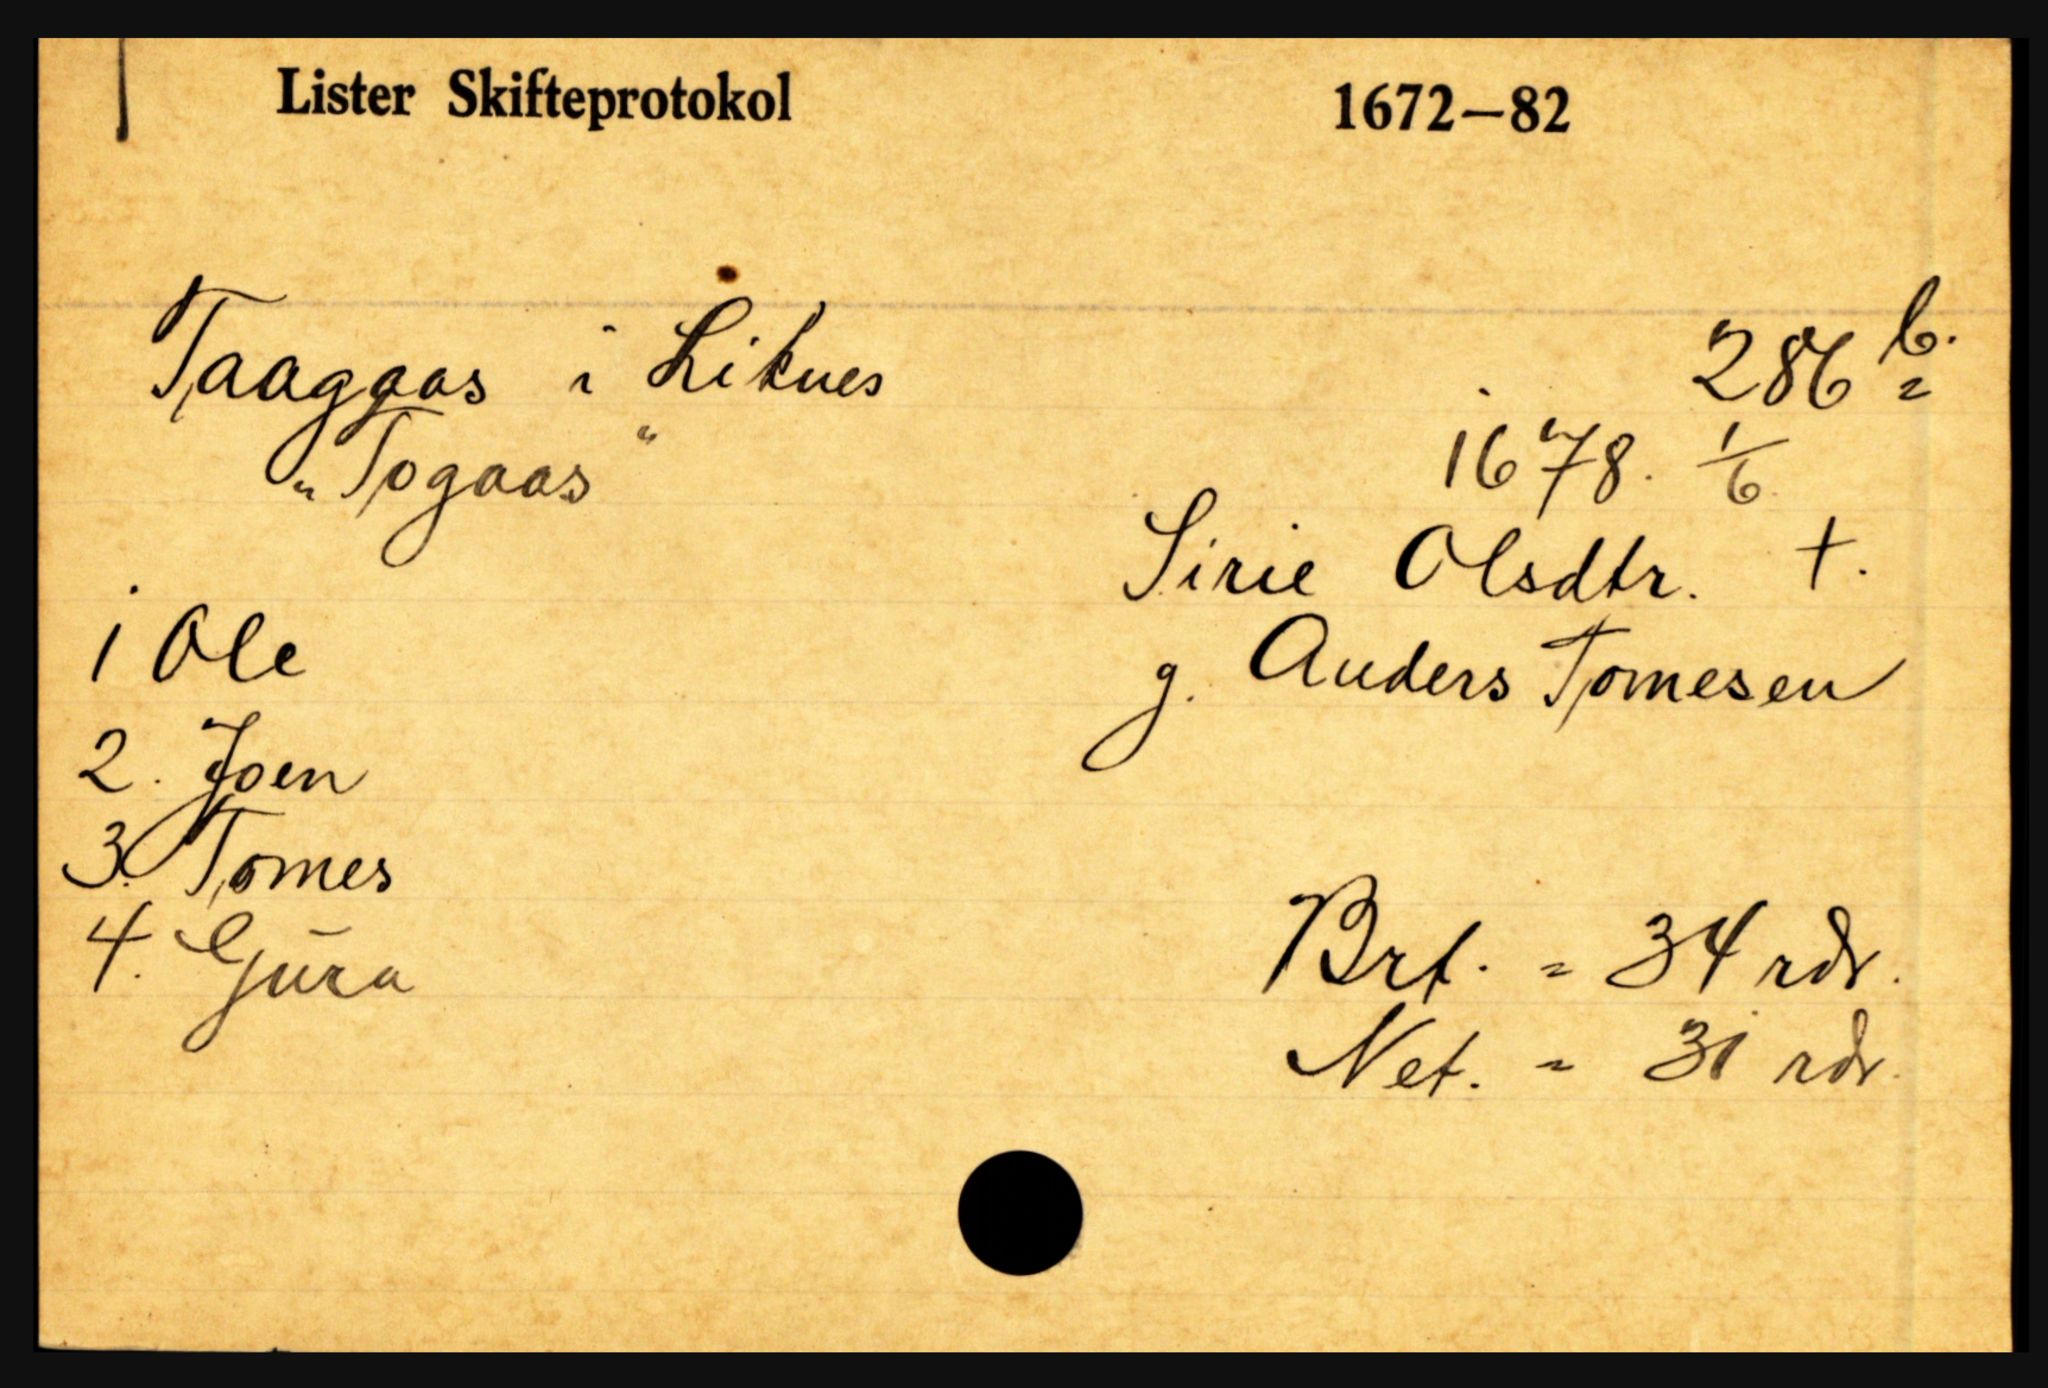 Lister Skifteprotokol 1672–82
Taagaas i Liknes 286 b.
"Togaas" 1678. 1/6
Sirie Olsdtr. †.
1 Ole
g. Anders Tomesen
2. Joen
3. Tomes
4. Gjura
Brt. = 34 rdr.
Net. = 31 rdr.